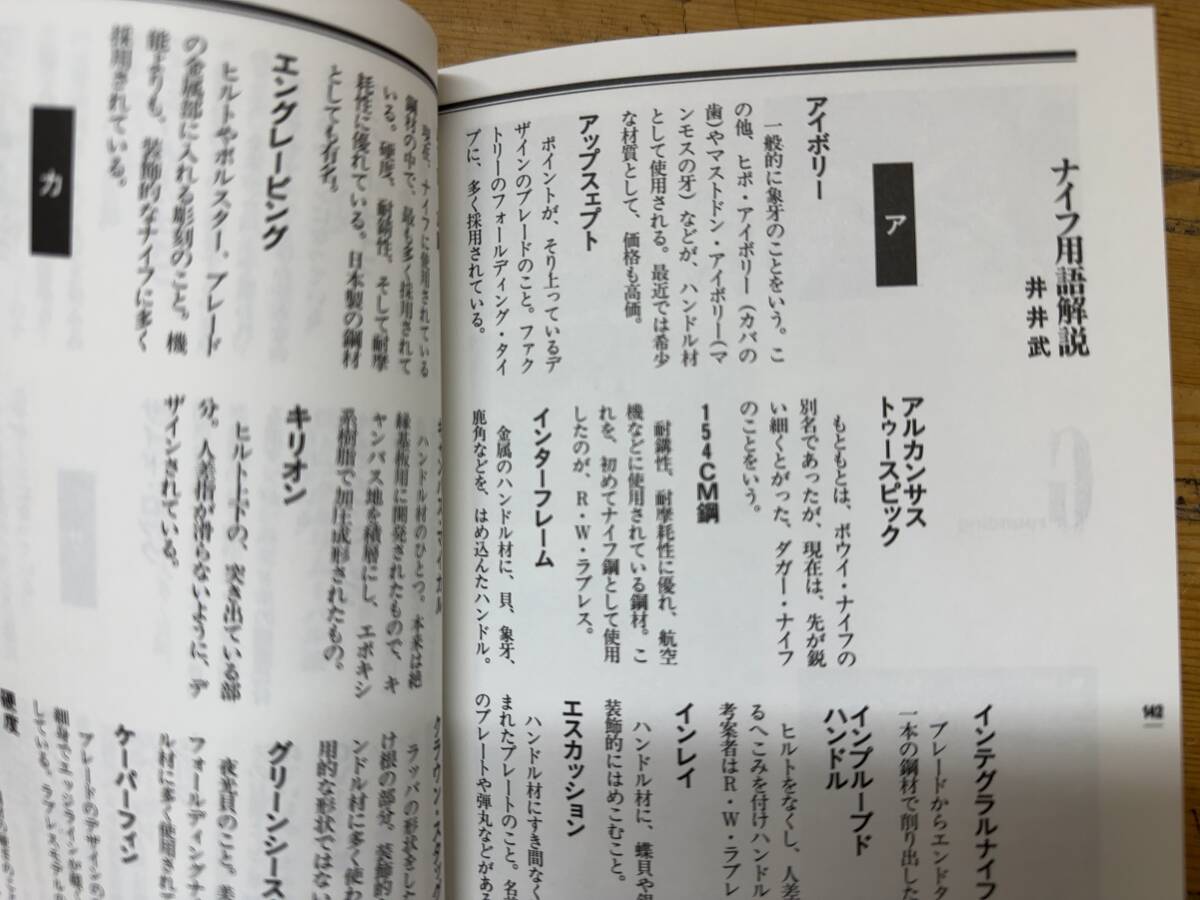 ナイフ用語解説
井井武
ア
アイボリー
一般的に象牙のことをいう。こ
の他、ヒポ・アイボリー（カバの
歯）やマストドン・アイボリー（マ
ンモスの牙）などが、ハンドル材
として使用される。最近では希少
な材質として、価格も高価。
アップスェプト
ポイントが、そり上っているデ
ザインのブレードのこと。ファク
トリーのフォールディング・タイ
プに、多く採用されている。
アルカンサス
トゥースピック
もともとは、ボウイ・ナイフの
別名であったが、現在は、先が鋭
い細くとがった、ダガー・ナイフ
のことをいう。
154CM鋼
耐錆性、耐摩耗性に優れ、航空
機などに使用されている鋼材。こ
れを、初めてナイフ鋼として使用
したのが、R・W・ラブレス。
インターフレーム
金属のハンドル材に、貝、象牙、
鹿角などを、はめ込んだハンドル。
インテグラルナイフ
ブレードからエンドタ
一本の鋼材で削り出した
インプルーブド
ハンドル
ヒルトをなくし、人差
るへこみを付けハンドル
考案者はR・W・ラブレ
インレイ
ハンドル材に、蝶貝や銀
装飾的にはめこむこと。
エスカッション
ハンドル材にすき間なく
まれたプレートのこと。名前
のプレートや弾丸などがある
142
現在、ナイフに使用されている
鋼材の中で、最も多く採用されて
いる。硬度、耐錆性、そして耐摩
耗性に優れている。日本製の鋼材
としても有名。
エングレービング
ヒルトやボルスター、ブレード
の金属部に入れる彫刻のこと。機
能よりも、装飾的なナイフに多く
採用されている。
カ
ハンドル材のひとつ。本来は絶
縁基板用に開発されたもので、キ
ャンバス地を積層にし、エポキシ
系樹脂で加圧成形されたもの。
キリオン
ヒルト上下の、突き出ている部
分。人差指が滑らないように、デ
ザインされている。
クラウン・スタッグ
ラッパの形状をした
け根の部分。装飾的な
ンドル材に多く使わ
用的な形状ではない
グリーンシース
夜光貝のこと。美
フォールディングナ
ル材に多く使用され
ケーパーフィン
ブレードのデザインの
細身でエッジラインが
している。ラブレスモデル
硬度